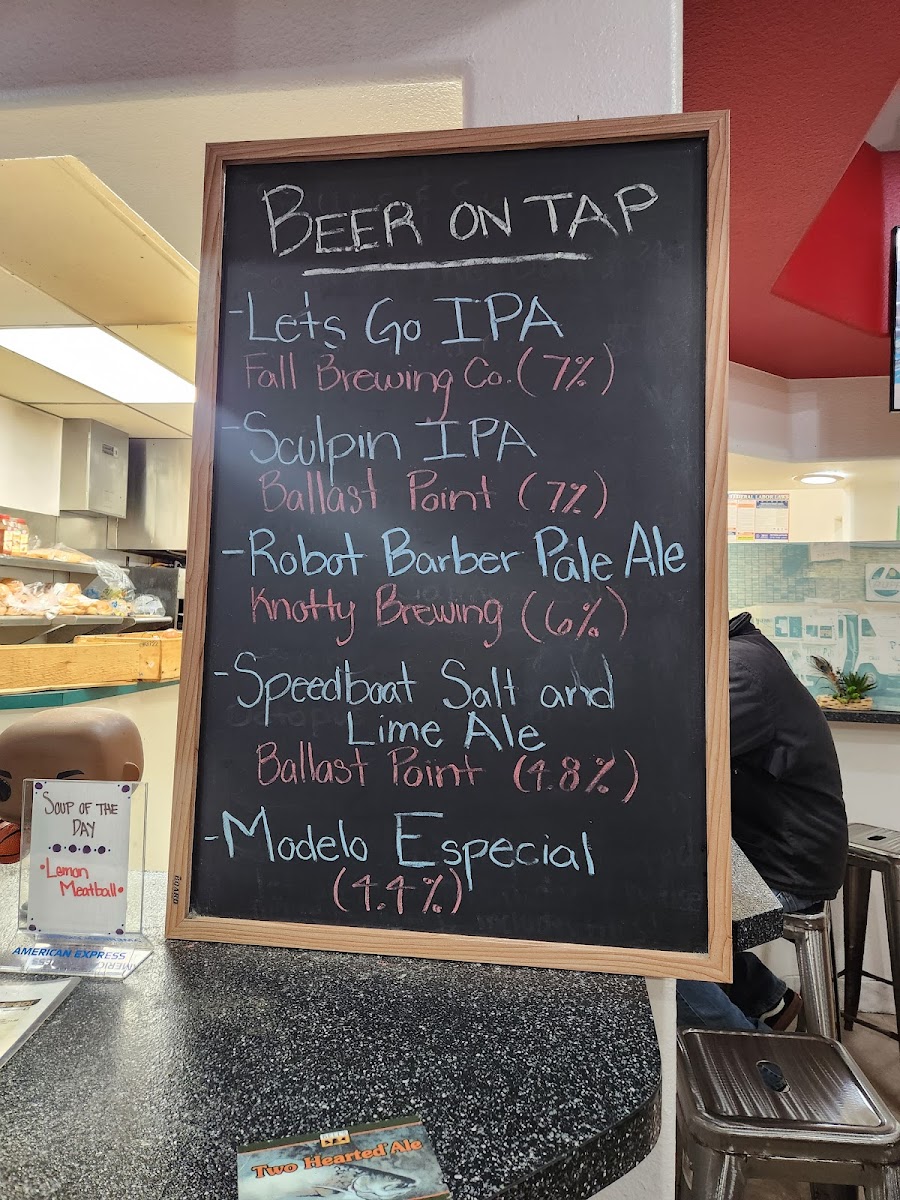 BEER ON TAP
-Let's Go IPA
Fall Brewing Co. (7%)
-Sculpin IPA
Ballast Point (7%)
-Robot Barber Pale Ale
Knotty Brewing (6%)
-Speedboat Salt and
Lime Ale
Ballast Point (4.8%)
-Modelo Especial
(4.4%)
BOARD
SOUP OF THE
DAY
•Lemon
Meatball•
AMERICAN EXPRESS
Two Hearted Ale